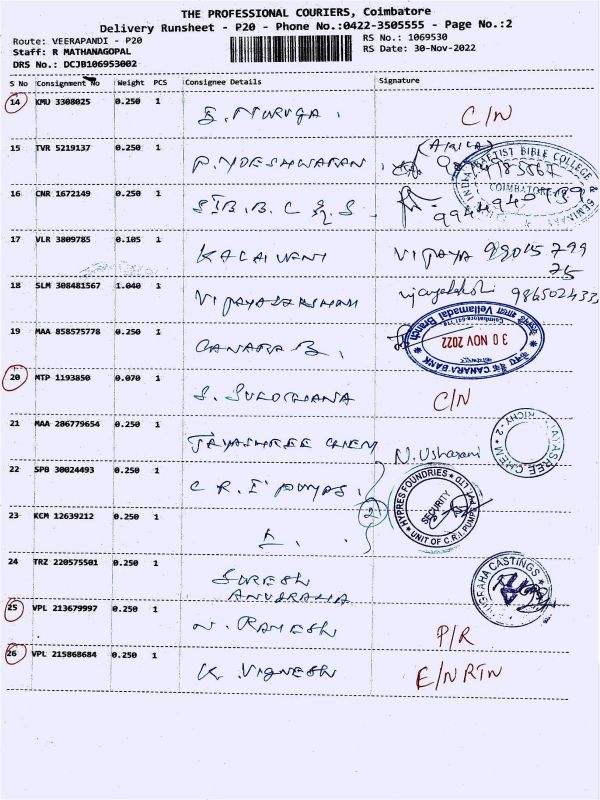 THE PROFESSIONAL COURIERS, Coimbatore
Delivery Runsheet - P20 - Phone No.:0422-3505555 - Page No.:2
Route: VEERAPANDI - P20
RS No.: 1069530
Staff: R MATHANAGOPAL
RS Date: 30-Nov-2022
DRS No.: DCJB106953002
S No Consignment No Weight PCS Consignee Details Signature
14 KMU 3308025 0.250 1 S. MURUGA. C/N
15 TVR 5219137 0.250 1 P. YOESHWARAN
INDIA BAPTIST BIBLE COLLEGE SEMINARY COIMBATORE
16 CNR 1672149 0.250 1 S I B. B. C & S
17 VLR 3809785 0.105 1 KALAIVANI VIJAYA 99015 799
75
18 SLM 308481567 1.040 1 vijayalakshmi 986502433
19 MAA 858575778 0.250 1 CANARA B.
CANARA BANK Vellamadai Branch 30 NOV 2022
20 MTP 1193850 0.070 1 S. SULOCHANA C/N
21 MAA 286779654 0.250 1 JAYASHREE CHEM N. Usharani
JAYASREE CHEM
22 SPB 30024493 0.250 1 C R I PUMPS.
2
HYPRES FOUNDRIES SECURITY UNIT OF C.R.I. PUMPS
23 KCM 12639212 0.250 1
24 TRZ 220575501 0.250 1 SURESH
ANUGRAHA
ANUGRAHA CASTINGS
25 VPL 213679997 0.250 1 N. RAMESH P/R
26 VPL 215868684 0.250 1 K. VIGNESH E/NRTN